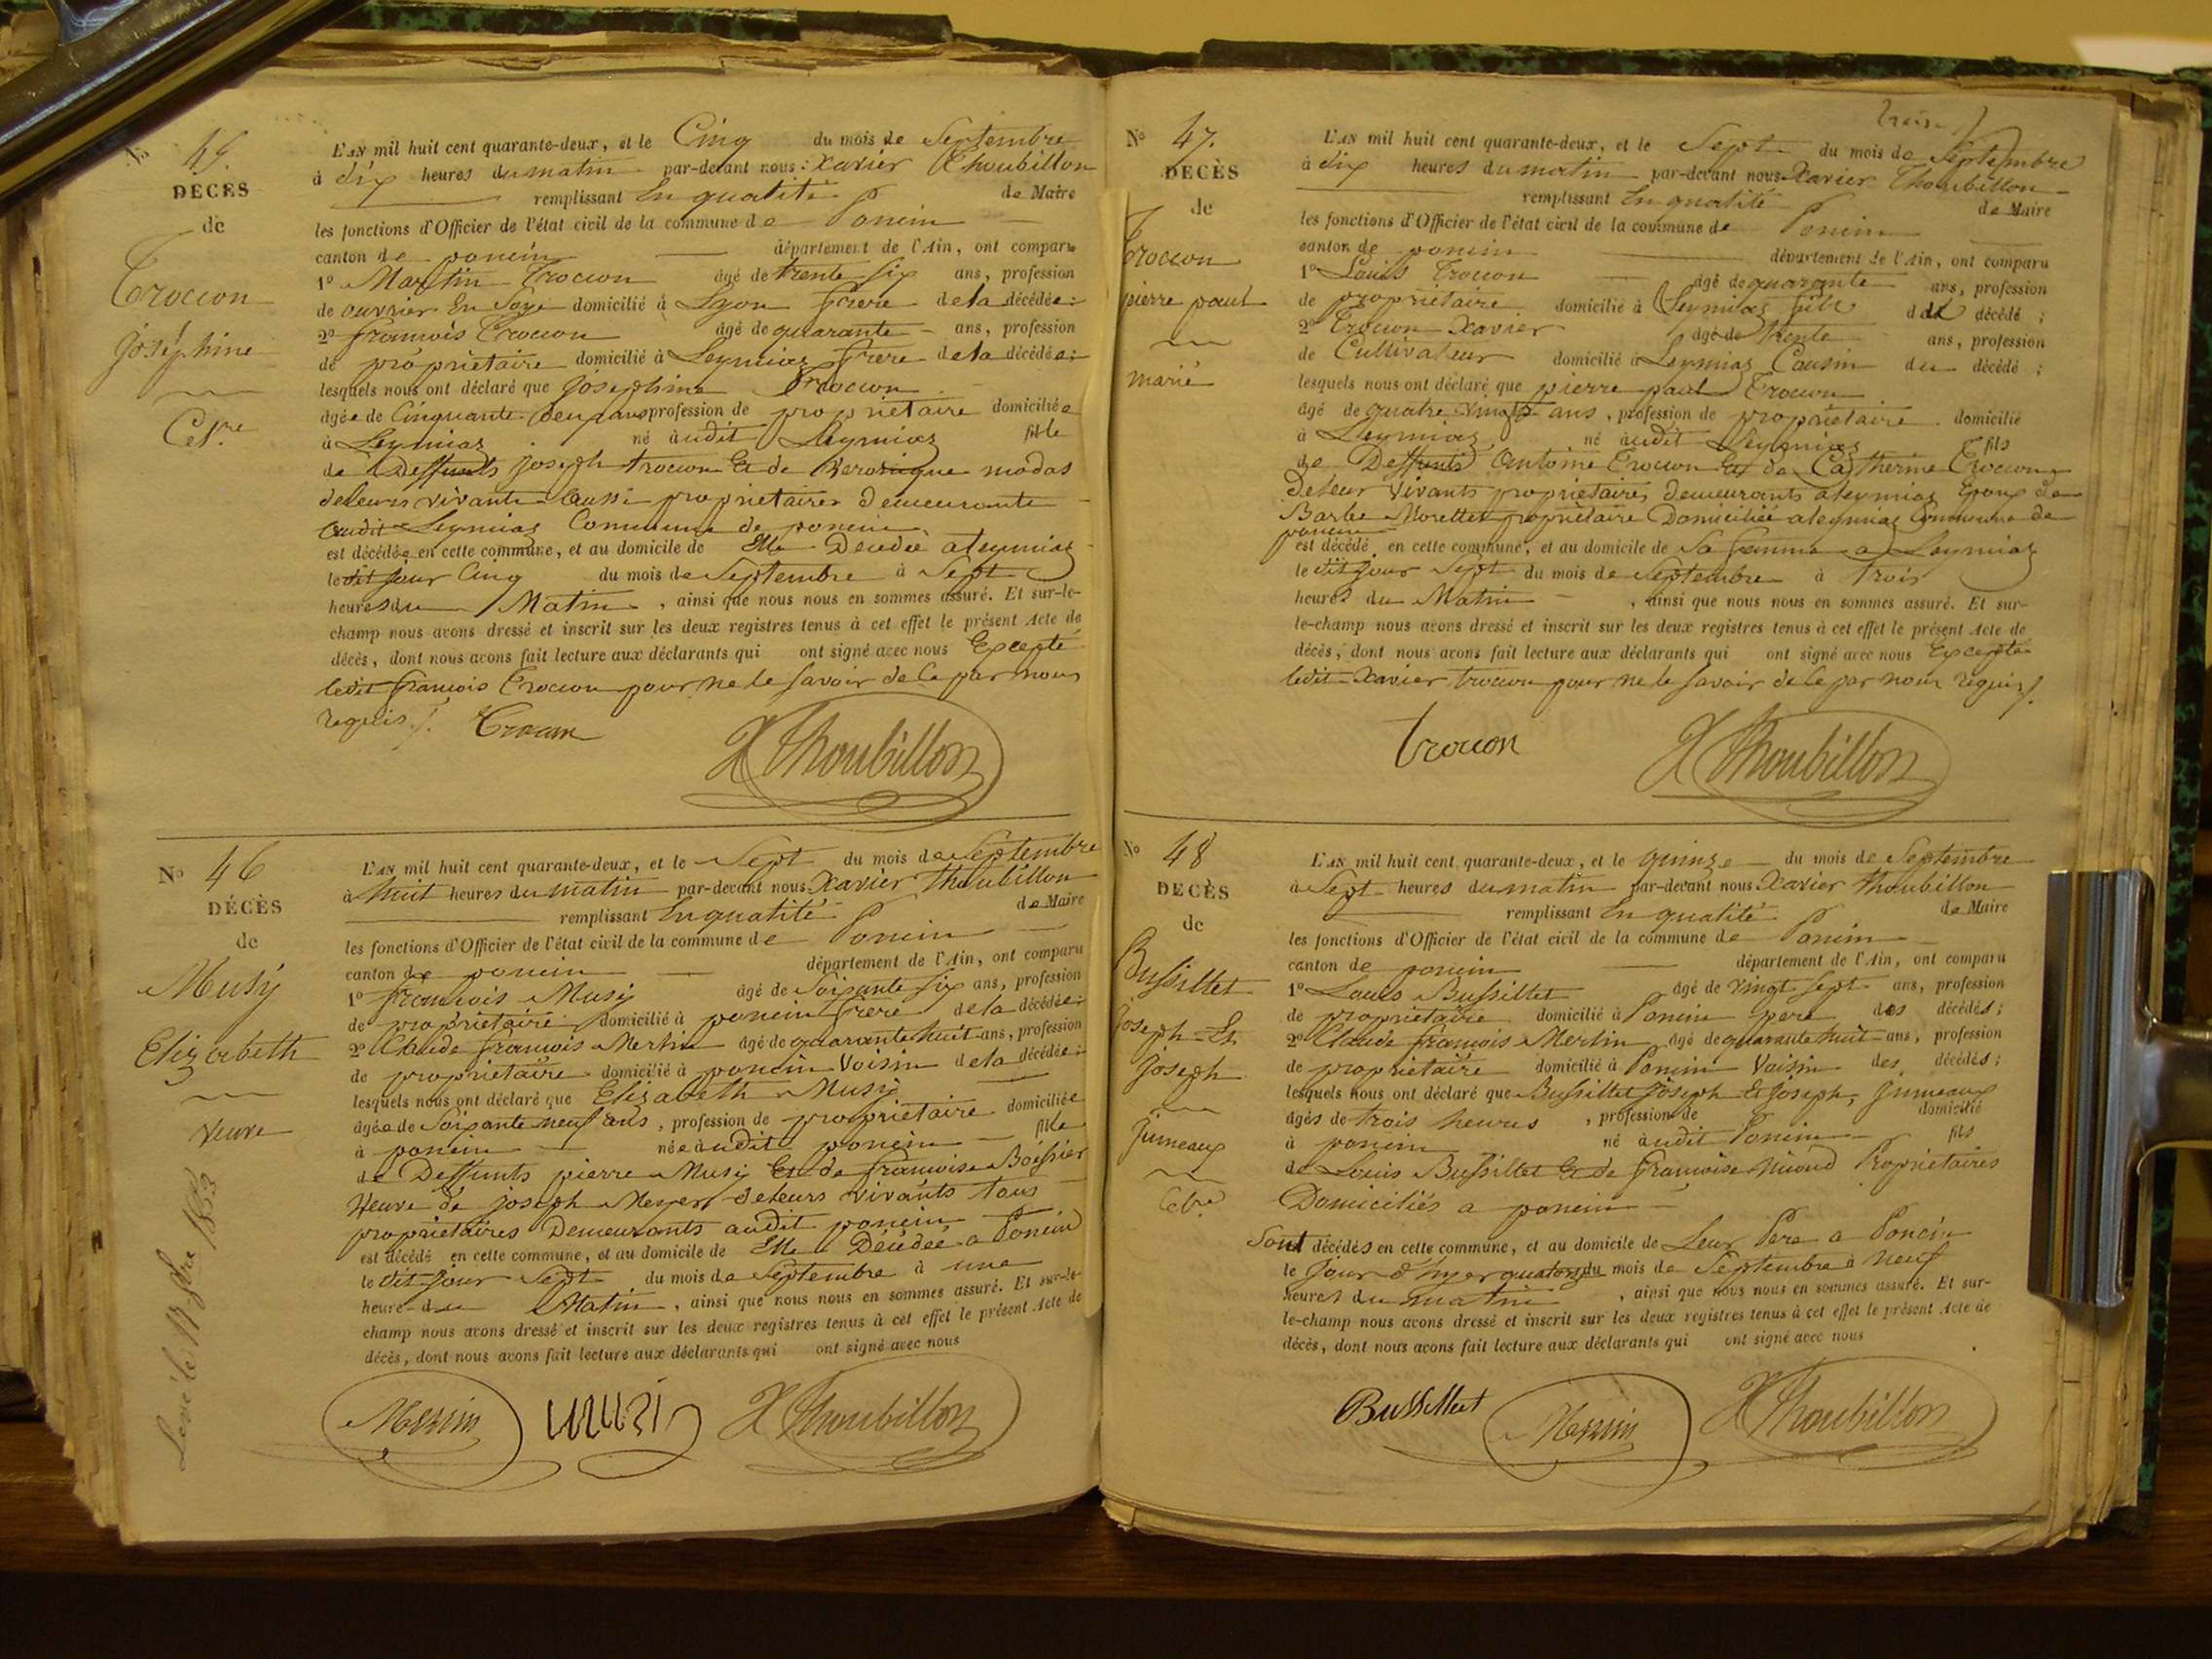 N° 45.
DÉCÈS
de
Trocion
Joséphine
Cel.re
L'AN mil huit cent quarante-deux, et le Cinq du mois de Septembre
à dix heures du matin par-devant nous : Xavier Thoubillon
remplissant En qualité de Maire
les fonctions d'Officier de l'état civil de la commune de Poncin
canton de poncin département de l'Ain, ont comparu
1° Martin Trocion âgé de trente six ans, profession
de ouvrier En Soye domicilié à Lyon frère de la décédée :
2° françois Trocion âgé de quarante ans, profession
de propriétaire domicilié à Leymiaz frère de la décédée :
lesquels nous ont déclaré que Joséphine Trocion
âgée de Cinquante-deux ans profession de propriétaire domiciliée
à Leymiaz né audit Leymiaz fille
de Deffunts Joseph trocion Et de Veronique modas
deleurs vivants aussi propriétaires demeurants
audit Leymiaz Commune de poncin
est décédée en cette commune, et au domicile de Elle Décédée a leymiaz
le dit jour Cinq du mois de Septembre à Sept
heures du Matin, ainsi que nous nous en sommes assuré. Et sur-le-
champ nous avons dressé et inscrit sur les deux registres tenus à cet effet le présent Acte de
décès, dont nous avons fait lecture aux déclarants qui ont signé avec nous Excepté
ledit françois Trocion pour ne le savoir de Ce par nous
requis /. Trocion X Thoubillon
N° 46
DÉCÈS
de
Musy
Elizabeth
veuve
L'AN mil huit cent quarante-deux, et le Sept du mois de Septembre
à huit heures du matin par-devant nous Xavier Thoubillon
remplissant En qualité de Maire
les fonctions d'Officier de l'état civil de la commune de Poncin
canton de poncin département de l'Ain, ont comparu
1° françois Musy âgé de Soixante six ans, profession
de propriétaire domicilié à poncin frère de la décédée :
2° Claude françois Merlin âgé de quarante huit ans, profession
de propriétaire domicilié à poncin Voisin de la décédée :
lesquels nous ont déclaré que Elizabeth Musy
âgée de Soixante neuf ans, profession de propriétaire domiciliée
à poncin née audit poncin fille
de Deffunts pierre Musy Et de françoise Boissier
Veuve de joseph Meyer deleurs vivants tous
propriétaires Demeurants audit poncin
est décédé en cette commune, et au domicile de Elle Décédée a Poncin
le dit jour Sept du mois de Septembre à une
heure du Matin, ainsi que nous nous en sommes assuré. Et sur-le-
champ nous avons dressé et inscrit sur les deux registres tenus à cet effet le présent Acte de
décès, dont nous avons fait lecture aux déclarants qui ont signé avec nous
Merlin Musy X Thoubillon
N° 47.
DÉCÈS
de
Trocion
pierre paul
marié
L'AN mil huit cent quarante-deux, et le Sept du mois de Septembre
à dix heures du matin par-devant nous Xavier Thoubillon
remplissant En qualité de Maire
les fonctions d'Officier de l'état civil de la commune de Poncin
canton de poncin département de l'Ain, ont comparu
1° Louis Trocion âgé de quarante ans, profession
de propriétaire domicilié à Leymiaz fils du décédé ;
2° Trocion Xavier âgé de trente ans, profession
de Cultivateur domicilié à Leymiaz Cousin du décédé ;
lesquels nous ont déclaré que pierre paul Trocion
âgé de quatre vingts ans, profession de propriétaire domicilié
à Leymiaz né audit Leymiaz fils
de Deffunts Antoine Trocion Et de Catherine Trocion
Deleur Vivants propriétaires demeurants aleymiaz Epoux de
Barbe Morellet propriétaire Domiciliée aleymiaz Commune de
poncin
est décédé en cette commune, et au domicile de Sa femme a Leymiaz
le dit jour Sept du mois de Septembre à trois
heures du Matin, ainsi que nous nous en sommes assuré. Et sur-
le-champ nous avons dressé et inscrit sur les deux registres tenus à cet effet le présent Acte de
décès, dont nous avons fait lecture aux déclarants qui ont signé avec nous Excepté
ledit Xavier trocion pour ne le savoir de Ce par nous requis /.
trocion X Thoubillon
N° 48
DÉCÈS
de
Bussillet
Joseph Et
Joseph
Jumeaux
L'AN mil huit cent quarante-deux, et le quinze du mois de Septembre
à Sept heures du matin par-devant nous Xavier Thoubillon
remplissant En qualité de Maire
les fonctions d'Officier de l'état civil de la commune de Poncin
canton de poncin département de l'Ain, ont comparu
1° Louis Bussillet âgé de vingt Sept ans, profession
de propriétaire domicilié à Poncin père des décédés ;
2° Claude françois Merlin âgé de quarante huit ans, profession
de propriétaire domicilié à Poncin Voisin des décédés ;
lesquels nous ont déclaré que Bussillet Joseph Et Joseph, Jumeaux
âgés de trois heures, profession de domicilié
à poncin né audit Poncin fils
de Louis Bussillet Et de françoise Propriétaires
Domiciliés a poncin
Sont décédés en cette commune, et au domicile de Leur Père a Poncin
le Jour d'hyer quatorze du mois de Septembre à neuf
heures du matin, ainsi que nous nous en sommes assuré. Et sur-
le-champ nous avons dressé et inscrit sur les deux registres tenus à cet effet le présent Acte de
décès, dont nous avons fait lecture aux déclarants qui ont signé avec nous
Bussillet Merlin X Thoubillon